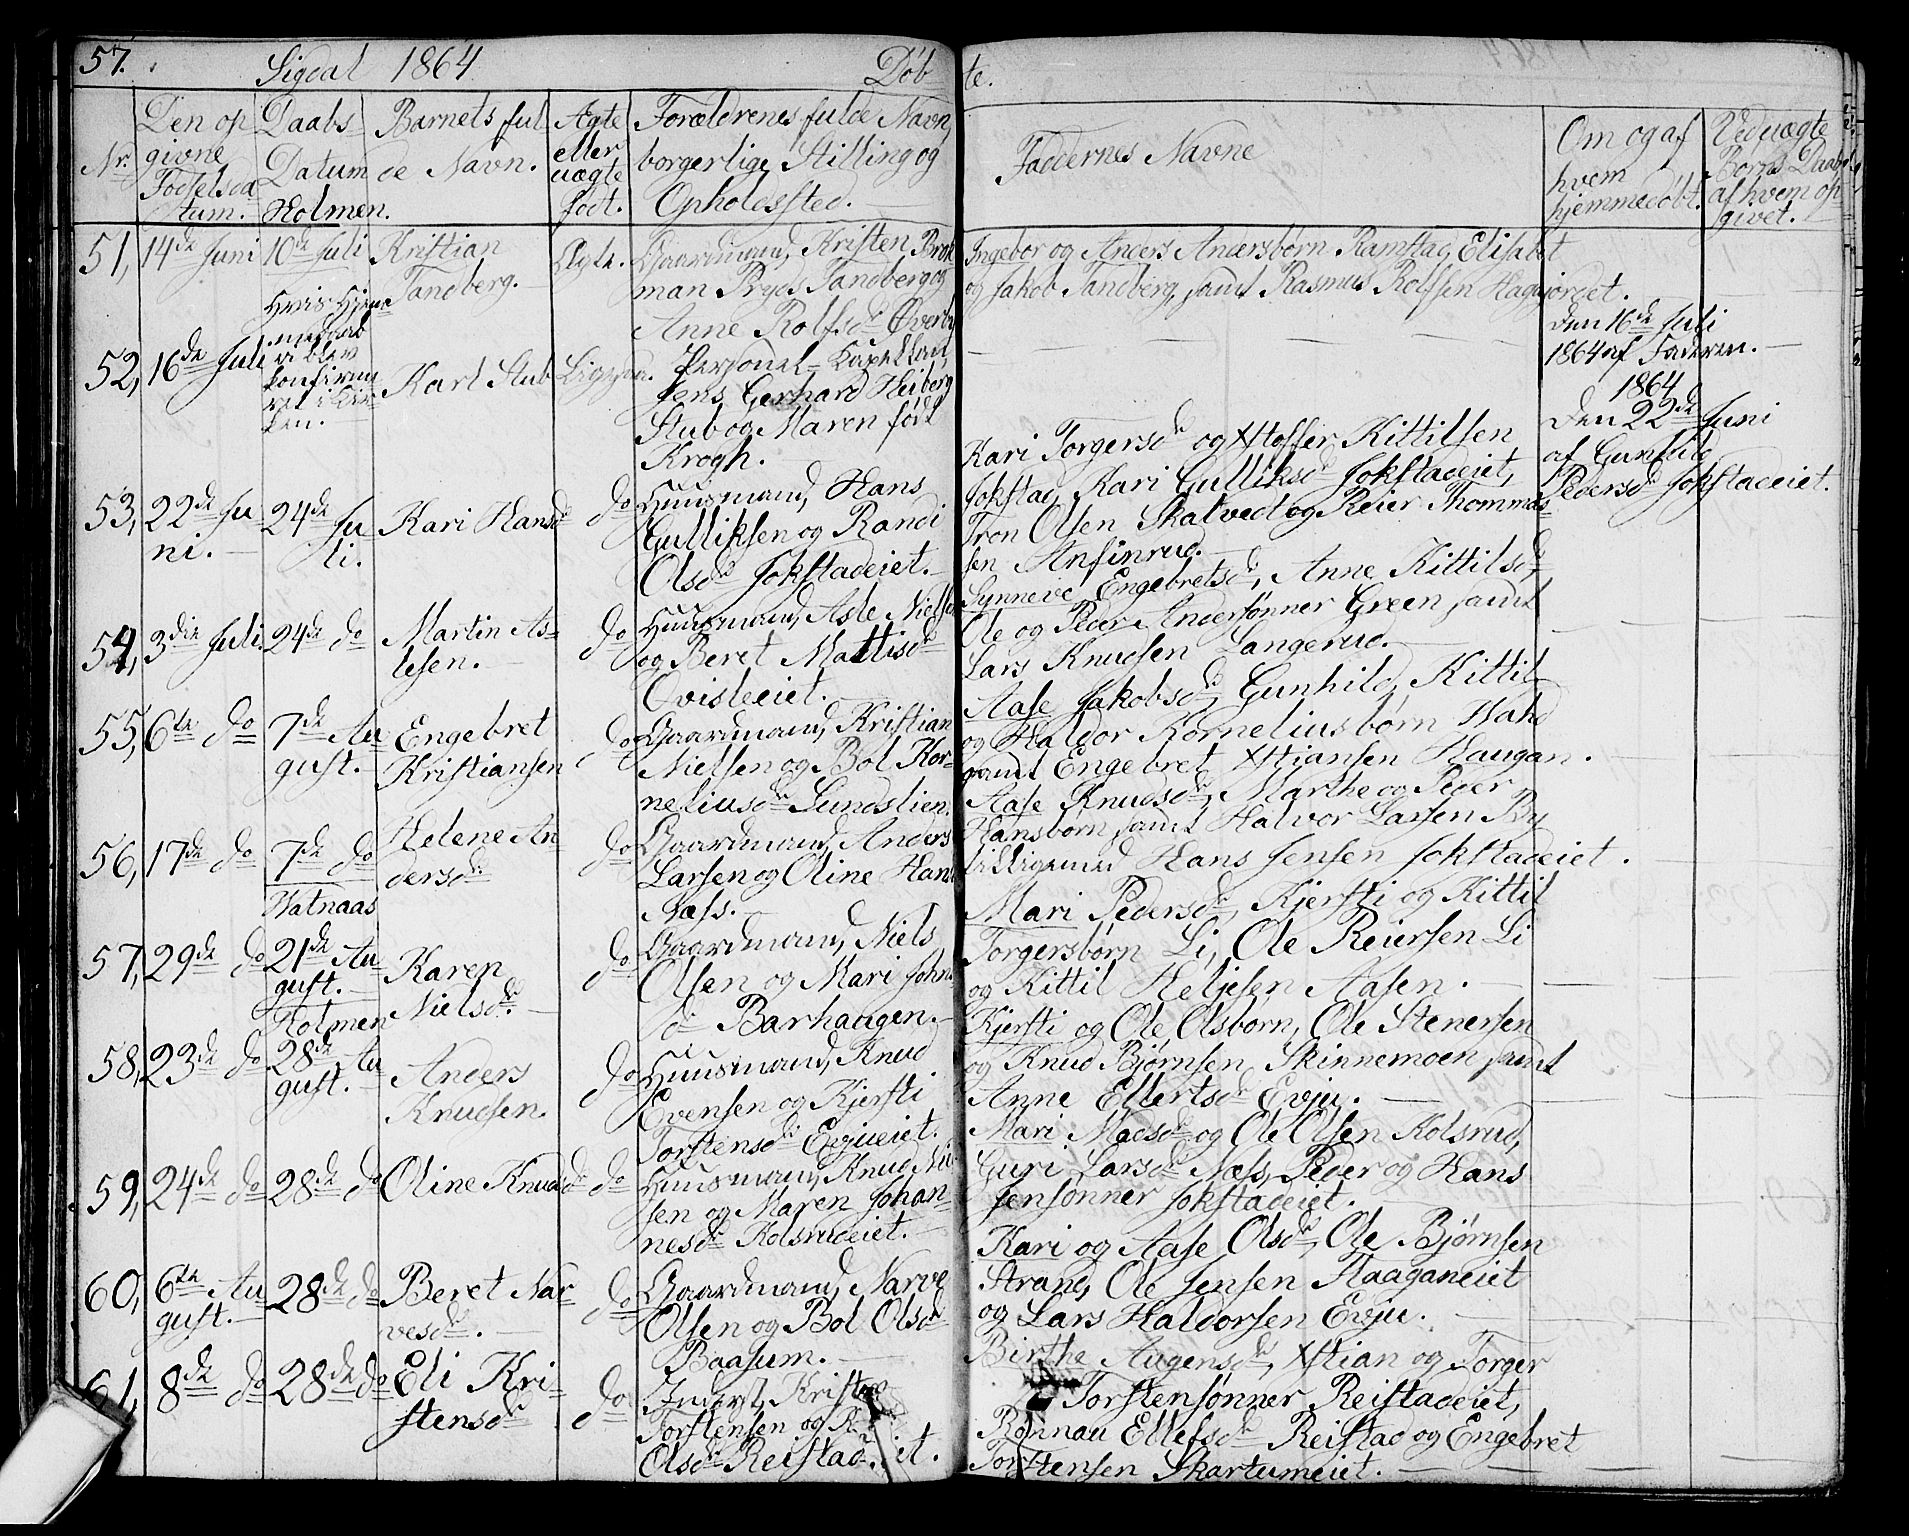 57.
Sigdal 1864
Døb
te.
Nr.
Den op
givne
Fødselsda
tum.
Daabs
Datum
Holmen.
Barnets ful
de Navn.
Ægte
eller
uægte
født.
Forældrenes fulde Navn,
borgerlige Stilling og
Opholdssted.
Faddernes Navne
Om og af
hvem
hjemmedøbt.
Ved uægte
Børns Daab
af hvem op
givet.
51, 14de Juni 10de Juli Kristian
Tandberg.
Ægte. Gaardmand, Kristen Brok
man Pryds Tandberg og
Anne Rolfsdr Øverby
Ingebor og Anders Andersbørn Ramstad, Elisabet
og Jakob Tandberg, samt Rasmus Rolfsen Hagejordet.
52, 16de Juli
Hvis Hjem
konfirme
ret i Kir
ken.
Karl Stub
Personel-Kapellan,
Jens Gerhard Heiberg
Stub og Maren født
Krogh.
Den 16de Juli
1864 af Faderen.
53, 22de Ju
ni.
24de Ju
li.
Kari Hansdr
do
Huusmand, Hans
Gulliksen og Randi
Olsdr Jokstadeiet.
Kari Torgersdr og Xstoffer Kittilsen
Jokstad, Kari Gulliksdr Jokstadeiet,
Tron Olsen Skalvedt og Reier Thommas
sen Anfinrud.
1864
Den 22de Juni
af Gunhild
Pedersdr Jokstadeiet.
54, 3die Juli. 24de do
Martin As-
lesen.
do
Huusmand, Asle Nielsen
og Beret Mattisdr
Qvisleeiet.
Synneve Engebretsdr, Anne Kittilsdr,
Ole og Peder Andersønner Green samt
Lars Knudsen Langerud.
55, 6te do 7de Au
gust.
Engebret
Kristiansen
do
Gaardmand, Kristian
Nielsen og Bol Kor-
neliusdr Lundslien.
Aase Jakobsdr, Gunhild, Kittil
og Haldor Korneliusbørn Hakd
samt Engebret Xstiansen Haugan.
56, 17de do 7de do
Helene An
dersdr
do
Gaardmand, Anders
Larsen og Oline Hans
Næss.
Aase Knudsdr, Marthe og Peder
Hansbørn samt Halvor Larsen By
tilligemed Hans Jensen Jokstadeiet.
Vatnaas
57, 29de do 21de Au
gust.
Karen
Nielsdr.
do
Gaardmand, Niels
Olsen og Mari Johns
dr Barhaugen.
Mari Pedersdr, Kjersti og Kittil
Torgersbørn Li, Ole Reiersen Li
og Kittil Heljesen Aasen.
Holmen
58, 23de do 28de Au
gust.
Anders
Knudsen
do
Huusmand, Knud
Evensen og Kjersti
Torstensdr Evjueiet.
Kjersti og Ole Olsbørn, Ole Stenersen
og Knud Bjørnsen Skinnemoen samt
Anne Ellertsdr Evju.
59, 24de do 28de do
Oline Knudsdr do
Huusmand, Knud Niel
sen og Maren Johan-
nesdr Kolsrudeiet.
Mari Madsdr og Ole Olsen Kolsrud,
Guri Larsdr Næss, Peder og Hans
Jensønner Jokstadeiet.
60, 6te Au
gust.
28de do
Beret Nar
vesdr.
do
Gaardmand, Narve
Olsen og Bol Olsdr
Baasum.
Kari og Aase Olsdr, Ole Bjørnsen
Strand, Ole Jensen Haaganeiet
og Lars Haldorsen Evju.
61, 8de do 28de do
Eli Kri
stensdr
do
Inderst, Kristen
Torstensen og
Olsdr Reistad iet.
Birthe Augensdr, Xstian og Torger
Torstensønner Reistadeiet,
Rønnau Ellefsdr Reistad og Engebret
Torstensen Skartumeiet.